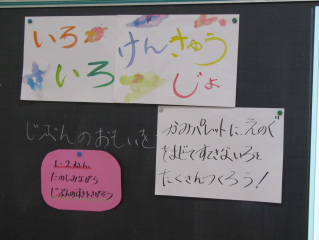 いろ けんきゅう
いろ じょ
じぶんのおもいを
かみパレットに、えのぐ
をまぜてすてきないろを
たくさんつくろう!
1・2ねん
たのしみながら
じぶんのすきをさがそう